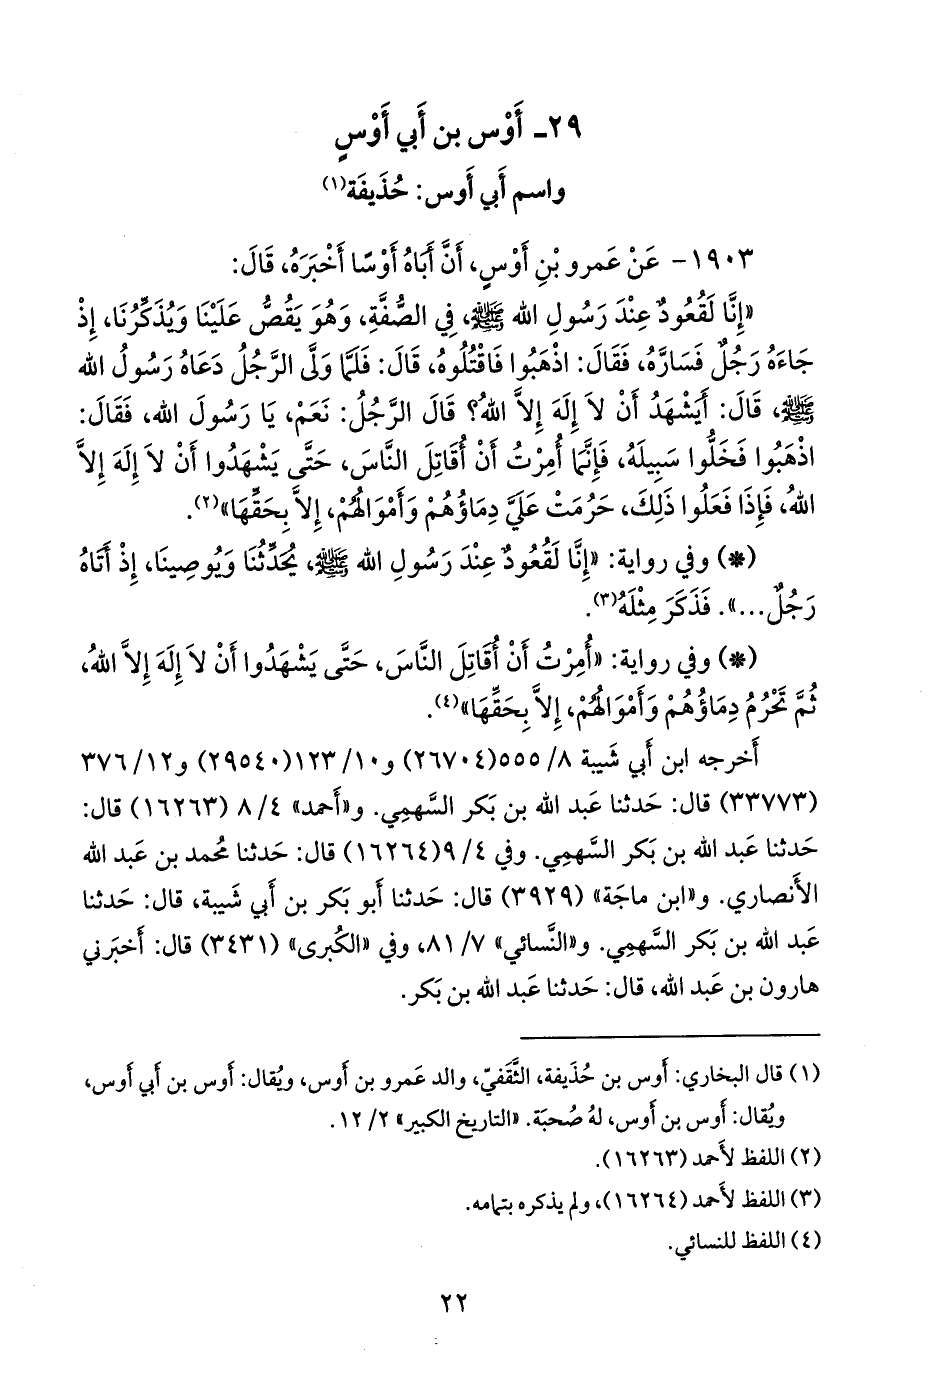 ٢٩- أَوْس بن أَبي أَوْسٍ
واسم أَبي أوس: حُذَيفَة(١)
١٩٠٣- عَنْ عَمرِو بْنِ أَوْسٍ، أَنَّ أَبَاهُ أَوْسًا أَخْبَرَهُ، قَالَ:
«إِنَّا لَقُعُودٌ عِنْدَ رَسُولِ الله ﷺ، فِي الصُّفَّةِ، وَهُوَ يَقُصُّ عَلَيْنَا وَيُذَكِّرُنَا، إِذْ
جَاءَهُ رَجُلٌ فَسَارَّهُ، فَقَالَ: اذْهَبُوا فَاقْتُلُوهُ، قَالَ: فَلَمَّا وَلَّى الرَّجُلُ دَعَاهُ رَسُولُ الله
ﷺ، قَالَ: أَيَشْهَدُ أَنْ لاَ إِلَهَ إِلاَّ اللهُ؟ قَالَ الرَّجُلُ: نَعَمْ، يَا رَسُولَ الله، فَقَالَ:
اذْهَبُوا فَخَلُّوا سَبِيلَهُ، فَإِنَّمَا أُمِرْتُ أَنْ أُقَاتِلَ النَّاسَ، حَتَّى يَشْهَدُوا أَنْ لاَ إِلَهَ إِلاَّ
اللهُ، فَإِذَا فَعَلُوا ذَلِكَ، حَرُمَتْ عَلَيَّ دِمَاؤُهُمْ وَأَمْوَالُهُمْ، إِلاَّ بِحَقِّهَا»(٢).
(*) وفي رواية: «إِنَّا لَقُعُودٌ عِنْدَ رَسُولِ الله ﷺ، يُحَدِّثُنَا وَيُوصِينَا، إِذْ أَتَاهُ
رَجُلٌ...». فَذَكَرَ مِثْلَهُ(٣).
(*) وفي رواية: «أُمِرْتُ أَنْ أُقَاتِلَ النَّاسَ، حَتَّى يَشْهَدُوا أَنْ لاَ إِلَهَ إِلاَّ اللهُ،
ثُمَّ تَحْرُمُ دِمَاؤُهُمْ وَأَمْوَالُهُمْ، إِلاَّ بِحَقِّهَا»(٤).
أَخرجه ابن أَبي شَيبة ٨/ ٥٥٥(٢٦٧٠٤) و١٠/ ١٢٣(٢٩٥٤٠) و١٢/ ٣٧٦
(٣٣٧٧٣) قال: حَدثنا عَبد الله بن بَكر السَّهمِي. و«أَحمد» ٤/ ٨ (١٦٢٦٣) قال:
حَدثنا عَبد الله بن بَكر السَّهمِي. وفي ٤/ ٩(١٦٢٦٤) قال: حَدثنا مُحمد بن عَبد الله
الأَنصاري. و«ابن ماجَة» (٣٩٢٩) قال: حَدثنا أَبو بَكر بن أَبي شَيبة، قال: حَدثنا
عَبد الله بن بَكر السَّهمِي. و«النَّسائي» ٧/ ٨١، وفي «الكُبرى» (٣٤٣١) قال: أَخبَرني
هارون بن عَبد الله، قال: حَدثنا عَبد الله بن بَكر.
(١) قال البخاري: أَوس بن حُذَيفة، الثَّقَفيّ، والد عَمرو بن أَوس، ويُقال: أَوس بن أَبي أَوس،
ويُقال: أَوس بن أَوس، لهُ صُحبَة. «التاريخ الكبير» ٢/ ١٢.
(٢) اللفظ لأَحمد (١٦٢٦٣).
(٣) اللفظ لأَحمد (١٦٢٦٤)، ولم يذكره بتمامه.
(٤) اللفظ للنسائي.
٢٢